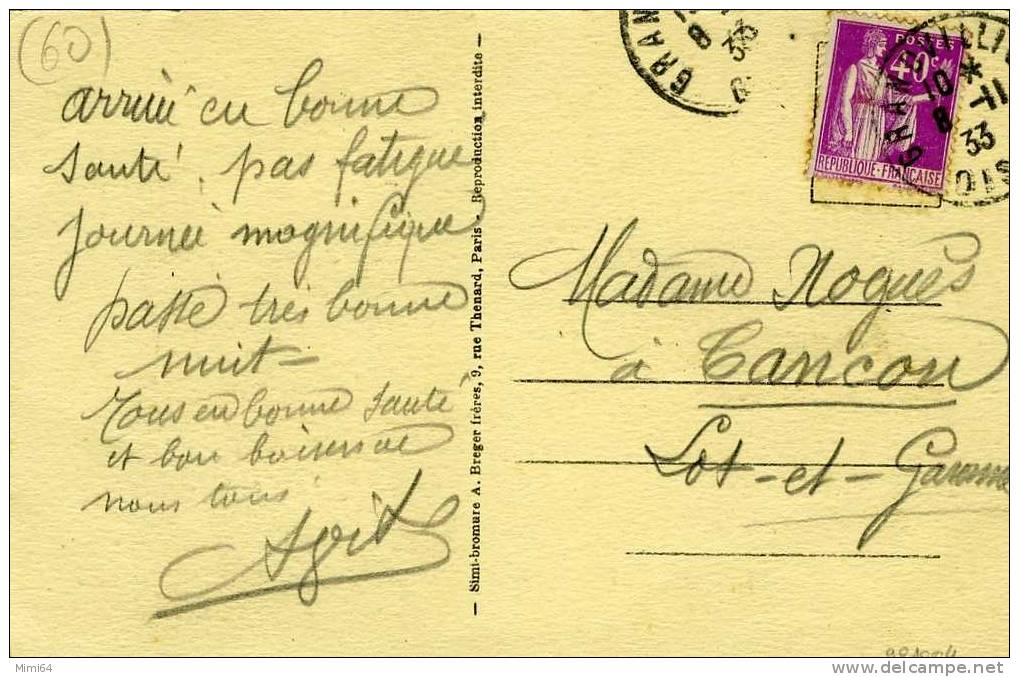 (60)
arrivée en bonne
santé, pas fatigue
journée magnifique
passé très bonne
nuit -
Tous en bonne santé
et bon baiser de
nous tous.
— Simi-bromure A. Breger frères, 9, rue Thenard, Paris - Reproduction interdite —
GRAN
8
33
POSTES
40 c.
REPUBLIQUE-FRANCAISE
GRANDVILLI
10 *
8 -11
33
OIS
Madame Nogues
à Cancon
Lot-et-Garonne
Mimi64
delcampe.net